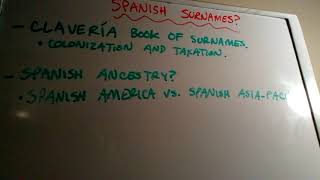 SPANISH SURNAMES?
- CLAVERÍA BOOK OF SURNAMES.
• COLONIZATION AND TAXATION.
- SPANISH ANCESTRY?
• SPANISH AMERICA VS. SPANISH ASIA-PAC